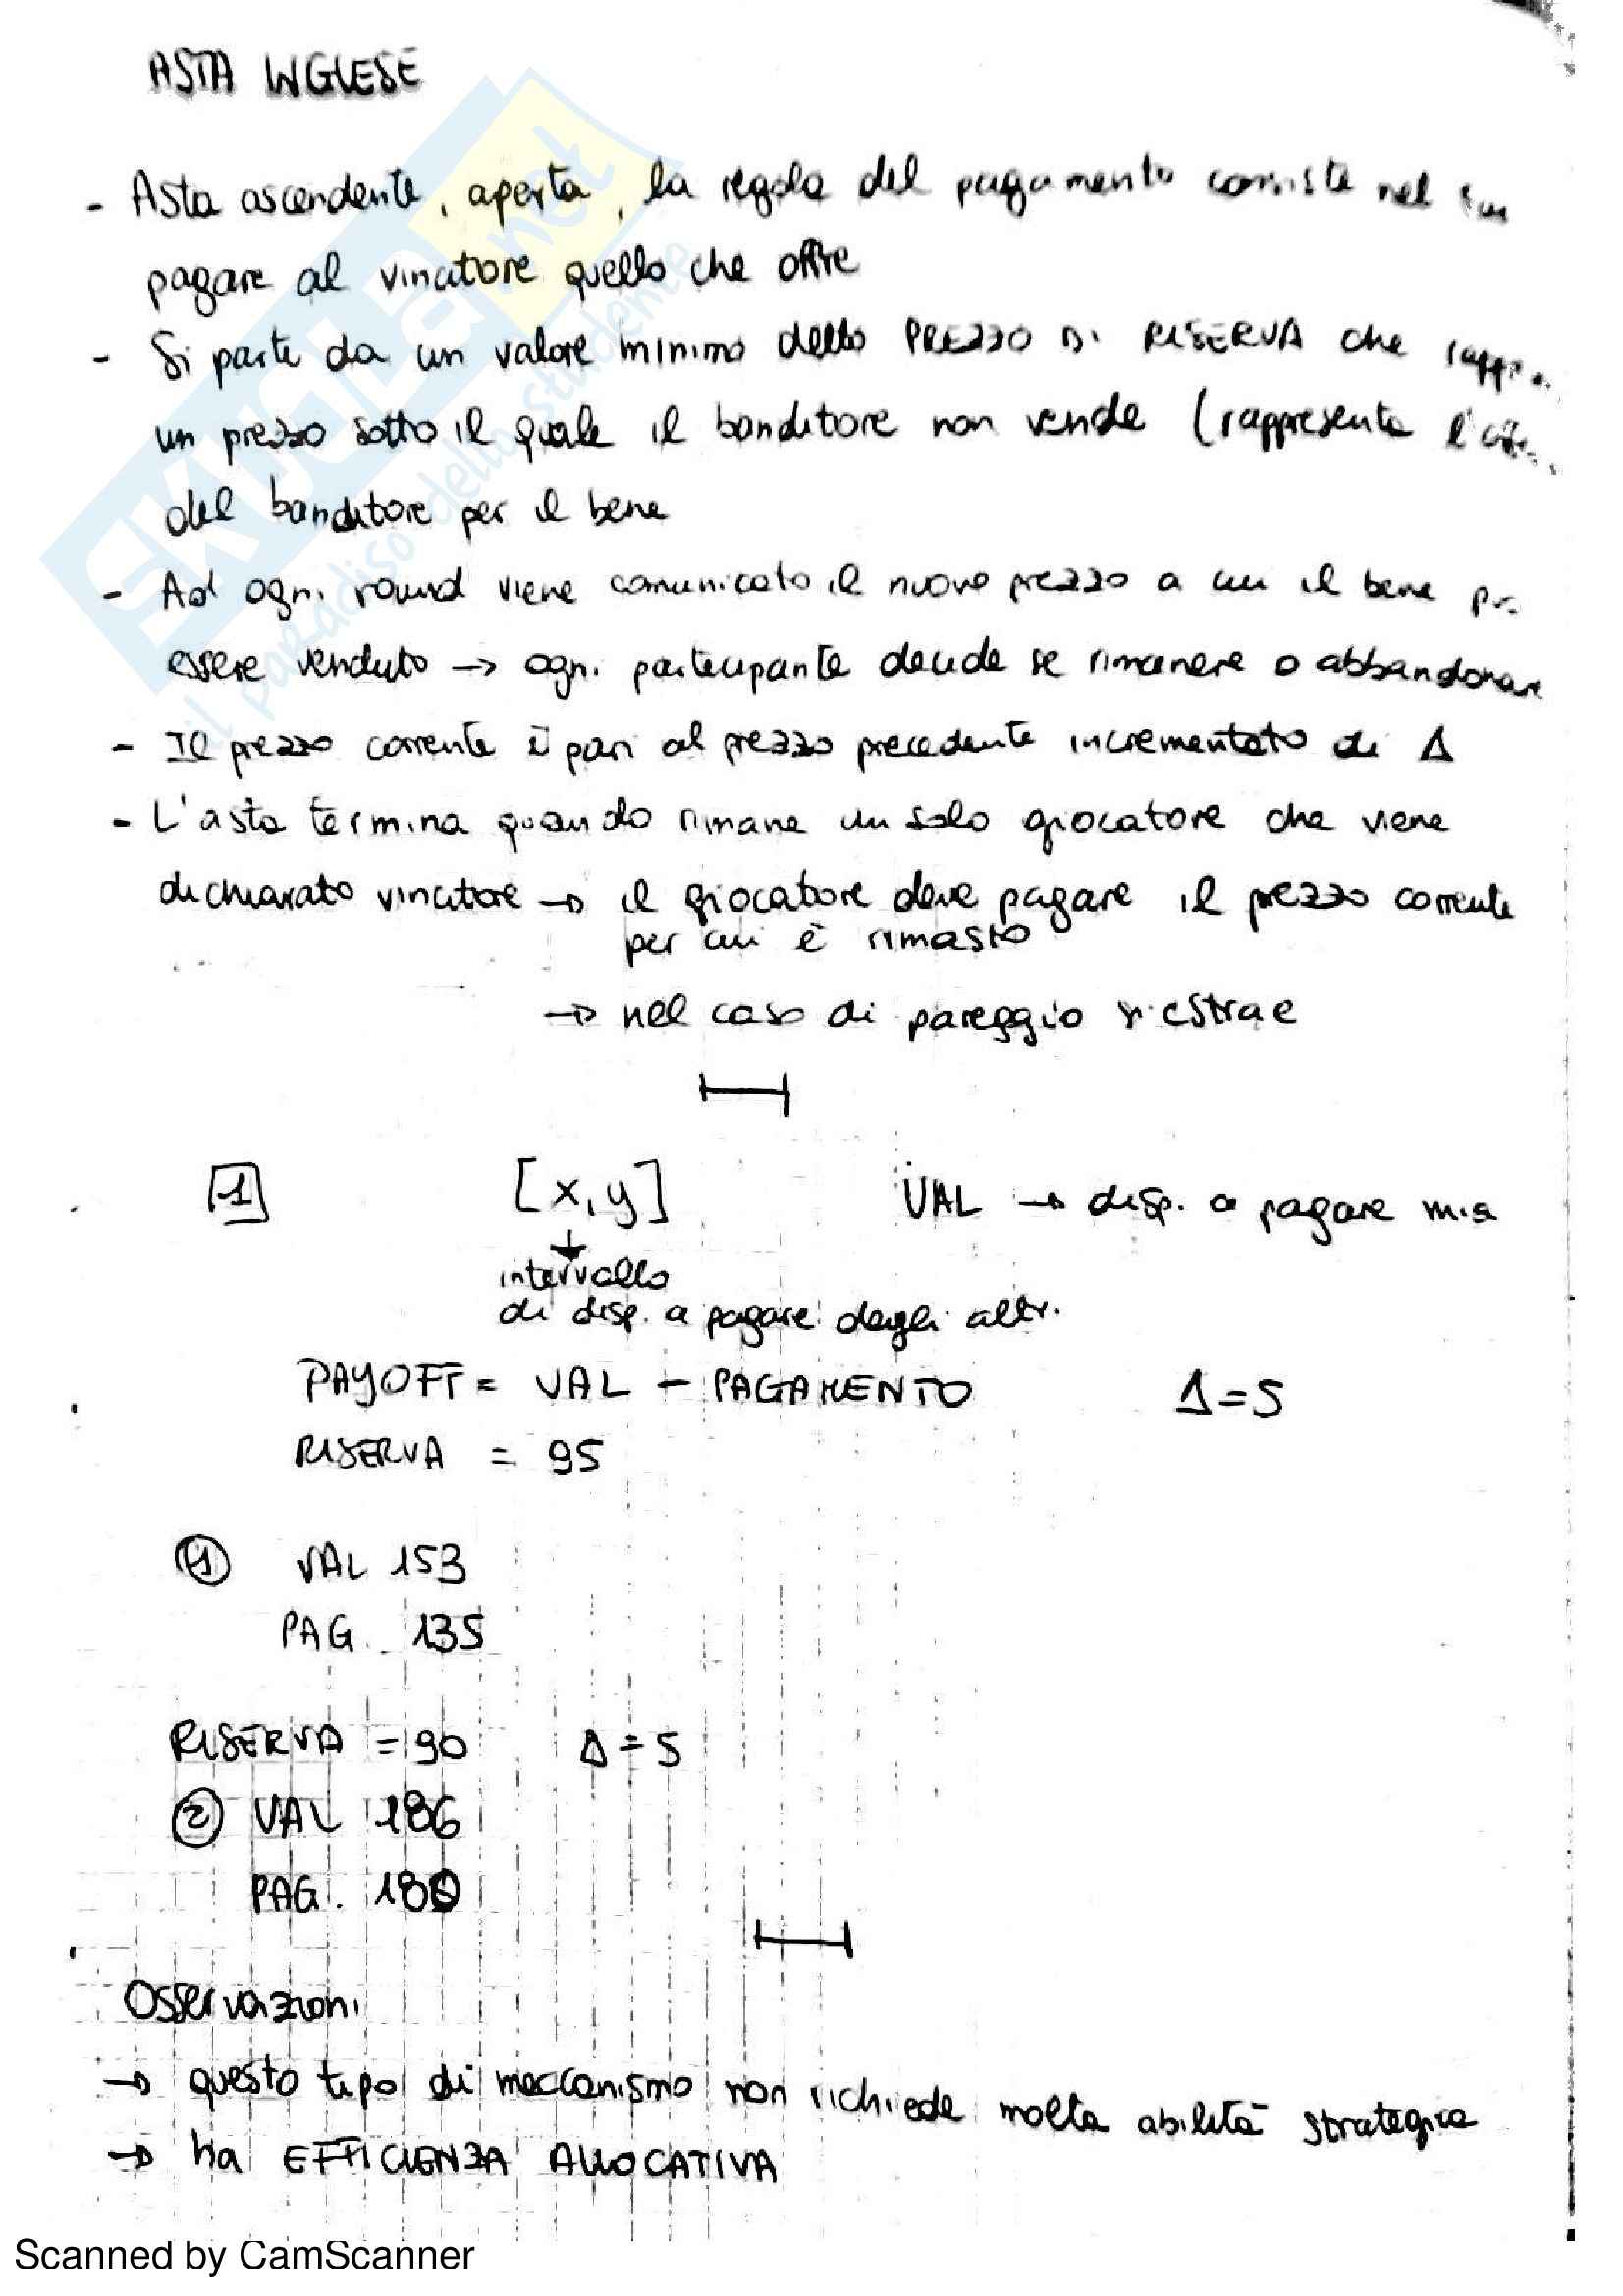 ASTA INGLESE
- Asta ascendente, aperta, la regola del pagamento consiste nel
pagare al vincitore quello che offre
- Si parte da un valore minimo detto PREZZO DI RISERVA che
un prezzo sotto il quale il banditore non vende (rappresenta
del banditore per il bene
- Ad ogni round viene comunicato il nuovo prezzo a cui il bene
essere venduto → ogni partecipante decide se rimanere o abbandonare
- Il prezzo corrente è pari al prezzo precedente incrementato di Δ
- L'asta termina quando rimane un solo giocatore che viene
dichiarato vincitore → il giocatore deve pagare il prezzo corrente
per cui è rimasto
→ nel caso di pareggio si estrae
1 [x,y] VAL → disp. a pagare mia
intervallo
di disp. a pagare degli altri
PAYOFF = VAL - PAGAMENTO Δ=5
RISERVA = 95
1 VAL 153
PAG. 135
RISERVA = 90 Δ=5
2 VAL 186
PAG. 180
Osservazioni
→ questo tipo di meccanismo non richiede molta abilità strategica
→ ha EFFICIENZA ALLOCATIVA
SKUOLA.net
il paradiso dello studente
Scanned by CamScanner